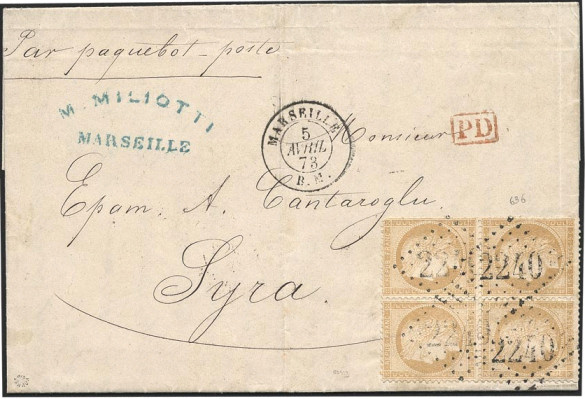 Par paquebot-poste
M. MILIOTTI
MARSEILLE
MARSEILLE
5
AVRIL
73
B.M.
Monsieur
PD
Epam. A. Cantaroglu
Syra.
636
2240
2240
2240
2240